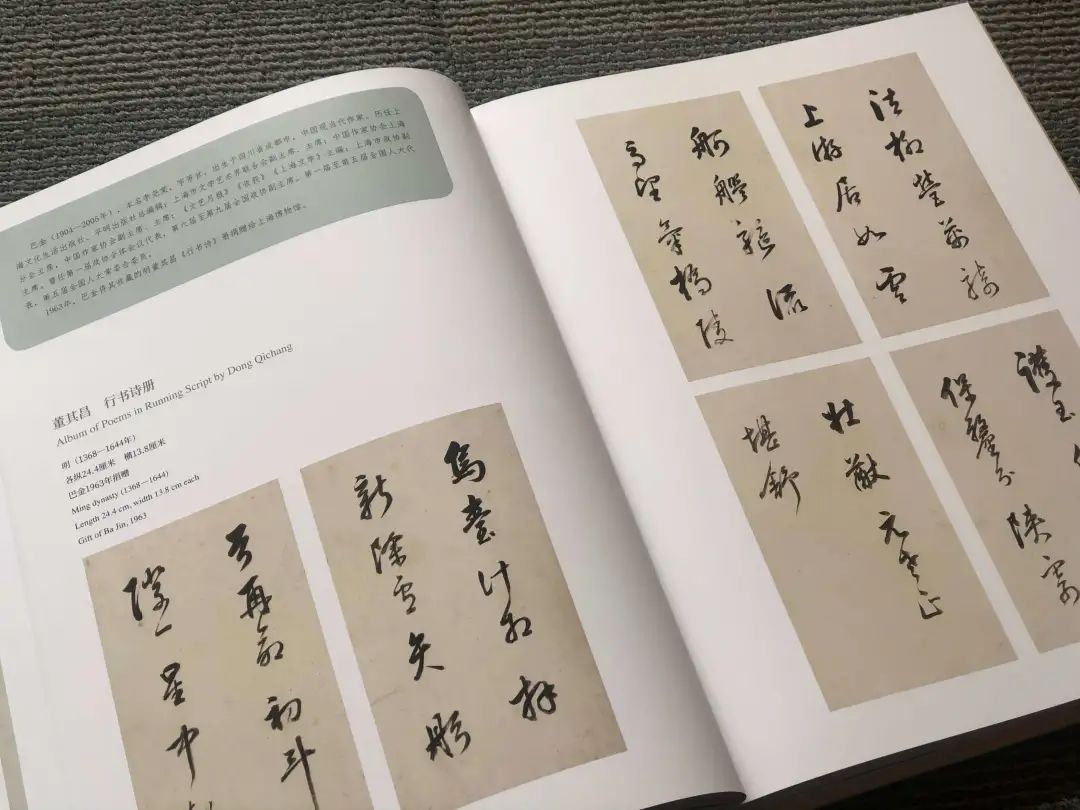 巴金（1904—2005年），本名李尧棠，字芾甘，出生于四川省成都市，中国现当代作家。历任上
海文化生活出版社、平明出版社总编辑；上海市文学艺术界联合会副主席、主席；中国作家协会上海
分会主席，中国作家协会副主席、主席；《文艺月报》《收获》《上海文学》主编；上海市政协副
主席。曾任第一届政协全体会议代表，第六届至第九届全国政协副主席，第一届至第五届全国人大代
表，第五届全国人大常委会委员。
1963年，巴金将其收藏的明董其昌《行书诗》册捐赠给上海博物馆。
董其昌　行书诗册
Album of Poems in Running Script by Dong Qichang
明（1368—1644年）
各纵24.4厘米　横13.8厘米
巴金1963年捐赠
Ming dynasty (1368—1644)
Length 24.4 cm, width 13.8 cm each
Gift of Ba Jin, 1963
烏臺計相拜
新除雪矢彤
弓再命初斗
一星中
法柳營萬騎
上游居如雲
舸艦流
高望氣橋陵
護玉
保釐分陝寄
壯猷元老正
堪